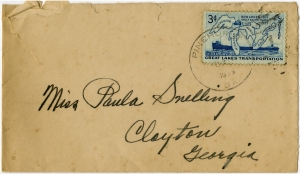 3¢
GREAT LAKES TRANSPORTATION
Miss Paula Snelling
Clayton
Georgia